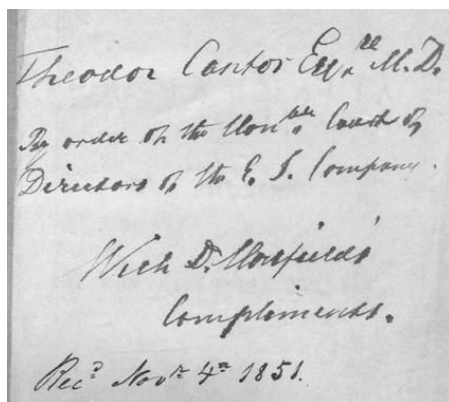 Theodor Cantor Esqre. M.D.
By order of the Honble. Court of
Directors of the E. I. Company.
With Dr. Horsfield's
Compliments.
Recd. Novr. 4th 1851.